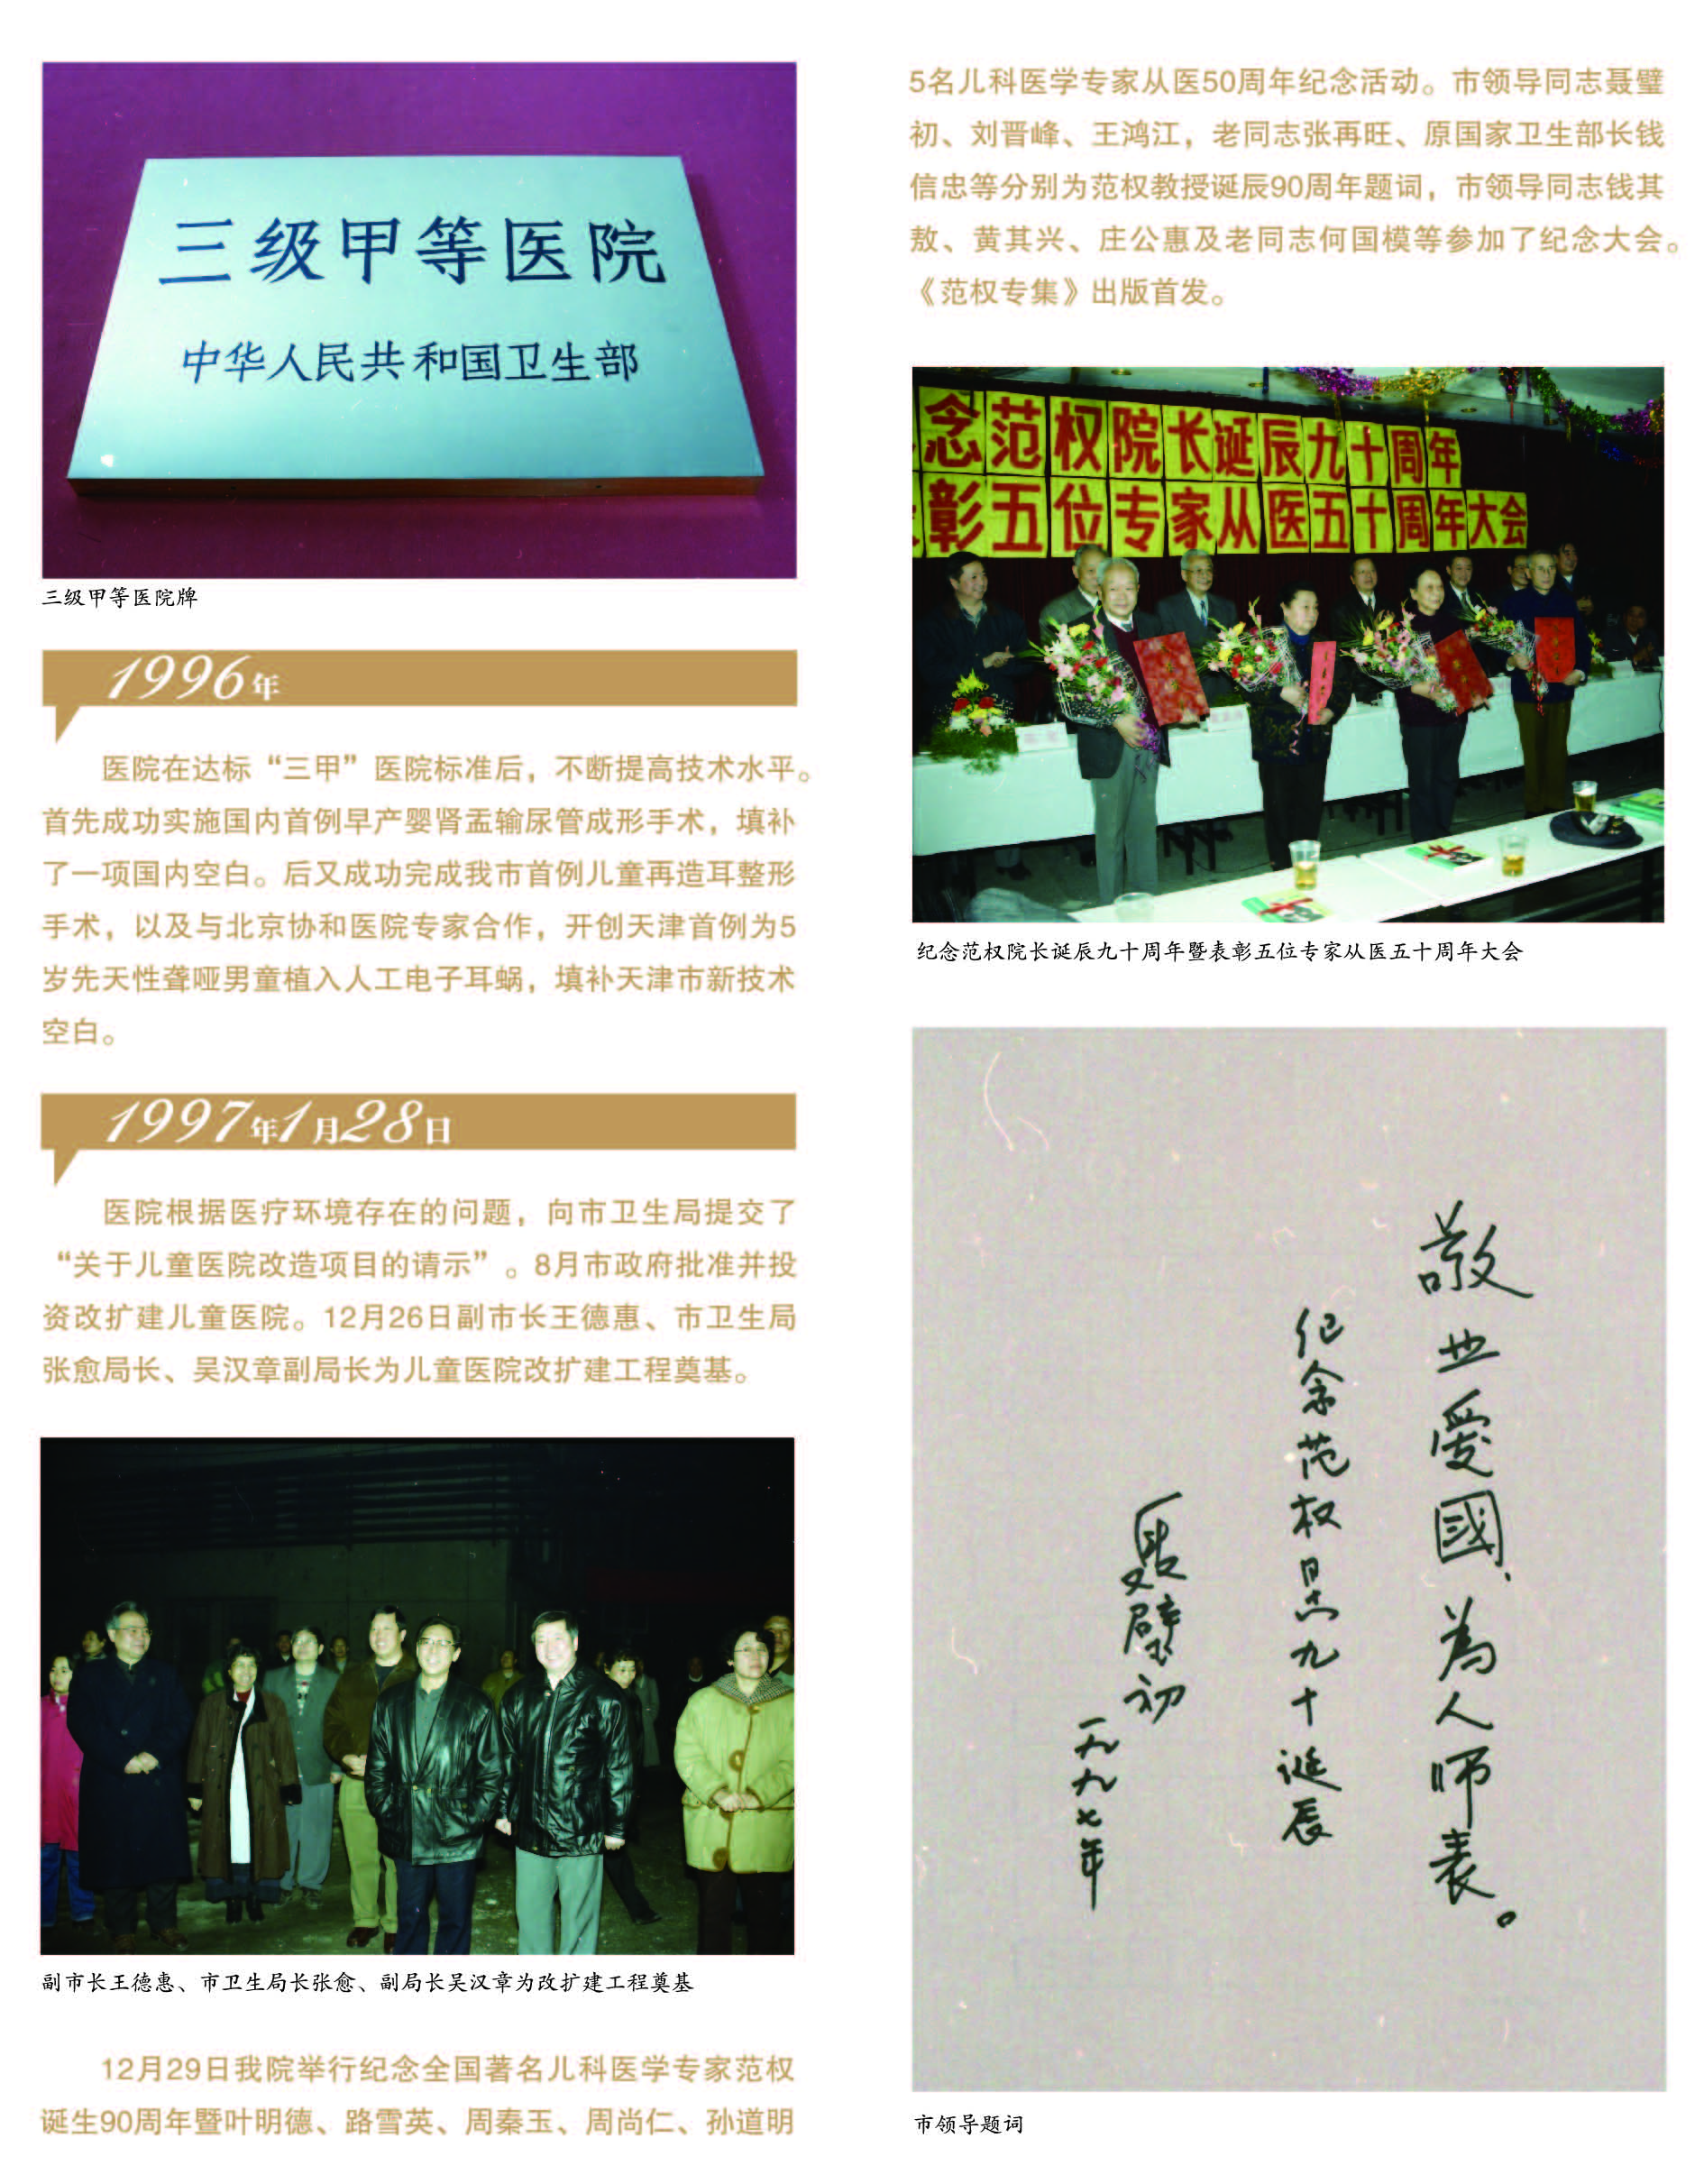 三级甲等医院
中华人民共和国卫生部
三级甲等医院牌
1996年
医院在达标“三甲”医院标准后，不断提高技术水平。
首先成功实施国内首例早产婴肾盂输尿管成形手术，填补
了一项国内空白。后又成功完成我市首例儿童再造耳整形
手术，以及与北京协和医院专家合作，开创天津首例为5
岁先天性聋哑男童植入人工电子耳蜗，填补天津市新技术
空白。
1997年1月28日
医院根据医疗环境存在的问题，向市卫生局提交了
“关于儿童医院改造项目的请示”。8月市政府批准并投
资改扩建儿童医院。12月26日副市长王德惠、市卫生局
张愈局长、吴汉章副局长为儿童医院改扩建工程奠基。
副市长王德惠、市卫生局长张愈、副局长吴汉章为改扩建工程奠基
12月29日我院举行纪念全国著名儿科医学专家范权
诞生90周年暨叶明德、路雪英、周秦玉、周尚仁、孙道明
5名儿科医学专家从医50周年纪念活动。市领导同志聂璧
初、刘晋峰、王鸿江，老同志张再旺、原国家卫生部长钱
信忠等分别为范权教授诞辰90周年题词，市领导同志钱其
敖、黄其兴、庄公惠及老同志何国模等参加了纪念大会。
《范权专集》出版首发。
念范权院长诞辰九十周年
彰五位专家从医五十周年大会
纪念范权院长诞辰九十周年暨表彰五位专家从医五十周年大会
敬业爱國、為人师表。
纪念范权同志九十诞辰
聂璧初
一九九七年
市领导题词